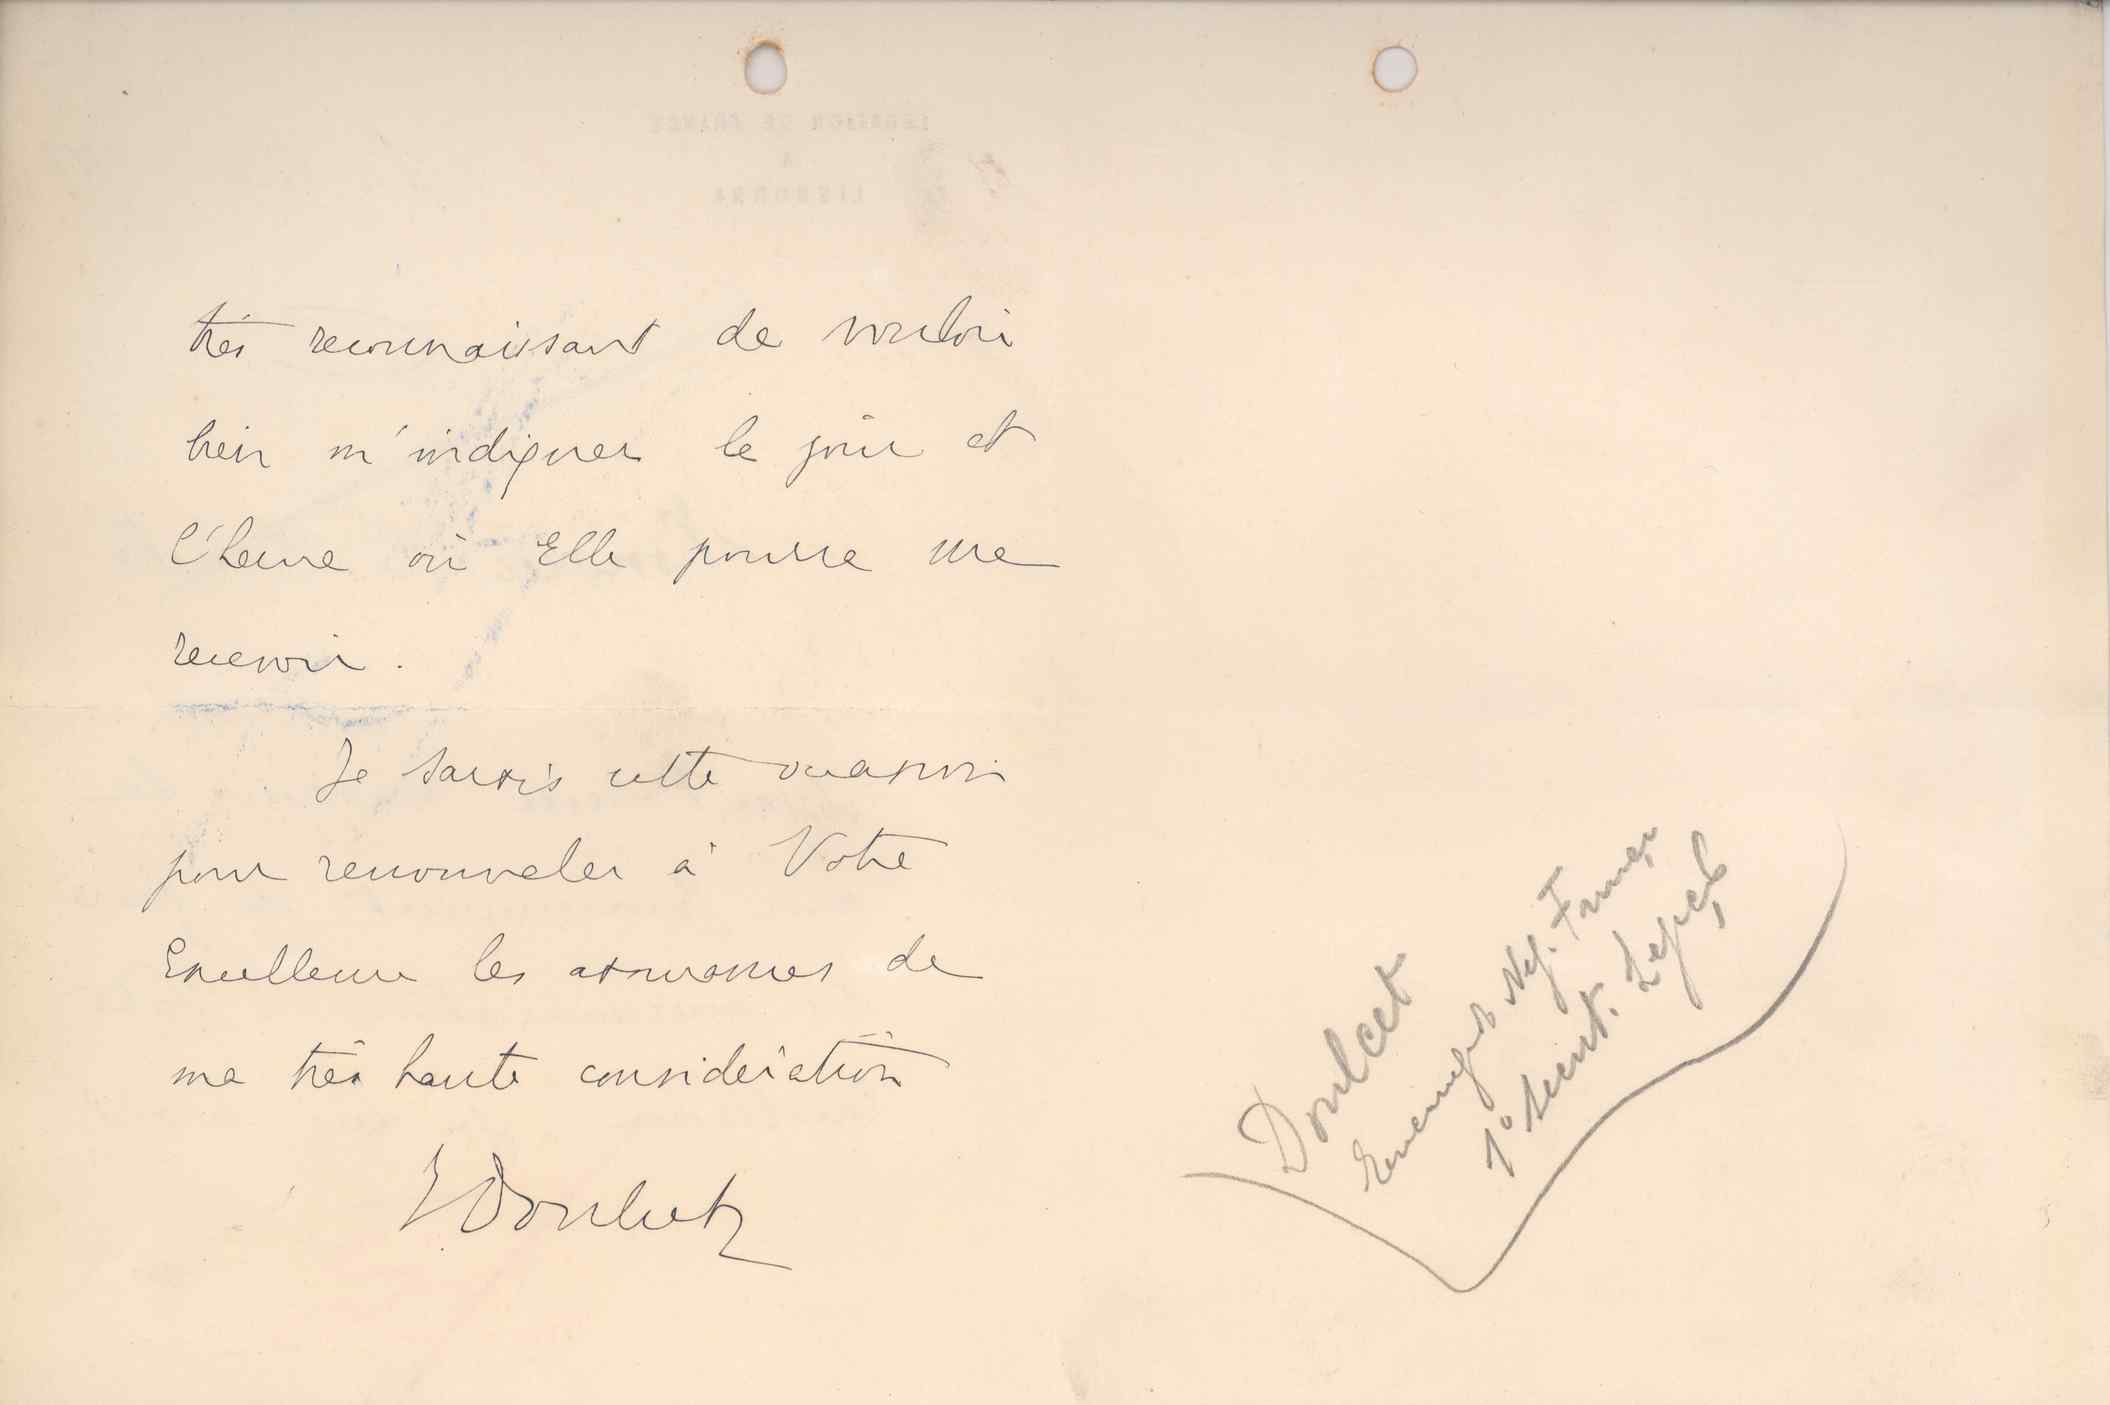 très reconnaissant de vouloir
bien m'indiquer le jour et
l'heure où Elle pourra me
recevoir.
Je saisis cette occasion
pour renouveler à Votre
Excellence les assurances de
ma très haute considération
Doulcet
Doulcet
Neg.
1º